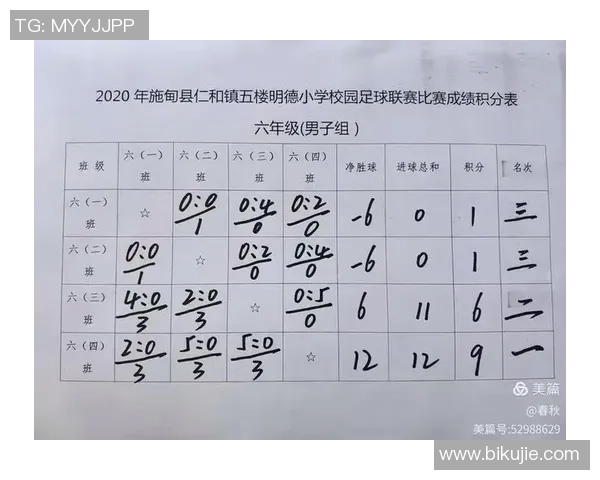 TG: MYYJJPP
2020 年施甸县仁和镇五楼明德小学校园足球联赛比赛成绩积分表
六年级(男子组）
班级 六（一）班 六（二）班 六（三）班 六（四）班 净胜球 进球总和 积分 名次
六（一）班 ☆ 0:0/1 0:4/0 0:2/0 -6 0 1 三
六（二）班 0:0/1 ☆ 0:2/0 0:4/0 -6 0 1 三
六（三）班 4:0/3 2:0/3 ☆ 0:5/0 6 11 6 二
六（四）班 2:0/3 5:0/3 5:0/3 ☆ 12 12 9 一
美篇
@春秋
美篇号:52988629
www.bikujie.com